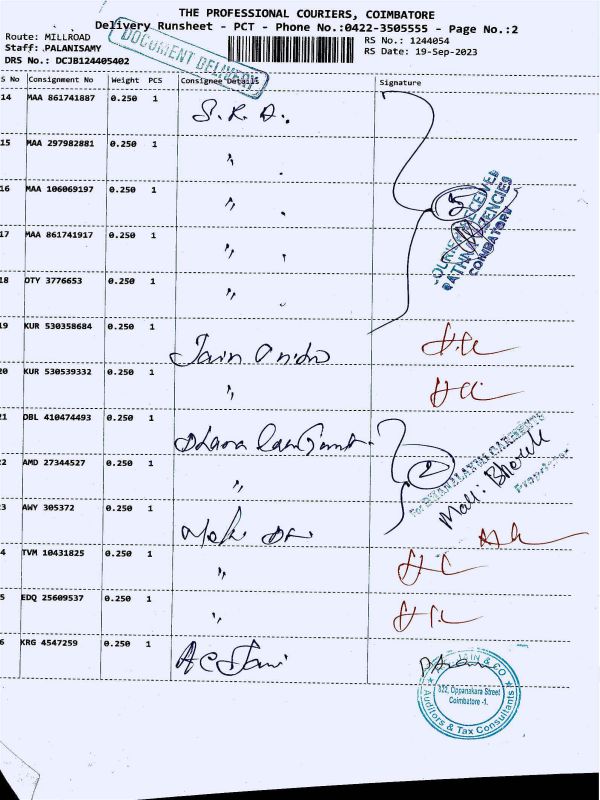 THE PROFESSIONAL COURIERS, COIMBATORE
Delivery Runsheet - PCT - Phone No.:0422-3505555 - Page No.:2
Route: MILLROAD
Staff: PALANISAMY
DRS No.: DCJB124405402
RS No.: 1244054
RS Date: 19-Sep-2023
DOCUMENT DELIVERY
S No Consignment No Weight PCS Consignee Details Signature
14 MAA 861741887 0.250 1 S.R.A.
15 MAA 297982881 0.250 1 "
16 MAA 106069197 0.250 1 "
17 MAA 861741917 0.250 1 "
18 DTY 3776653 0.250 1 "
5
COIMBATORE
19 KUR 530358684 0.250 1 Jain
20 KUR 530539332 0.250 1 "
21 DBL 410474493 0.250 1
2 AMD 27344527 0.250 1 "
2
Proprietor
3 AWY 305372 0.250 1
4 TVM 10431825 0.250 1 "
5 EDQ 25609537 0.250 1 "
6 KRG 4547259 0.250 1
JAIN & CO
322, Oppanakara Street
Coimbatore -1.
Auditors & Tax Consultants